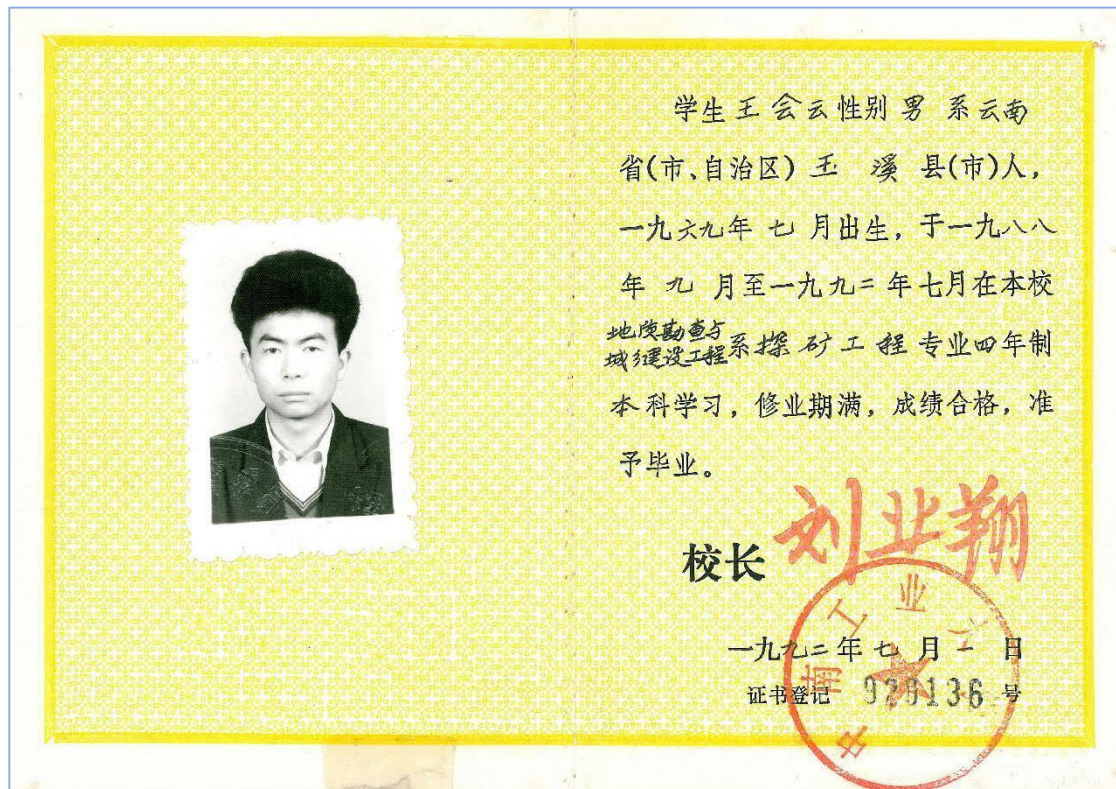 学生王会云性别男 系云南
省(市、自治区) 玉 溪 县(市)人,
一九六九年 七 月出生, 于一九八八
年 九 月至一九九二年七月在本校
地质勘查与
城乡建设工程系探矿工程专业四年制
本科学习, 修业期满, 成绩合格, 准
予毕业。
校长 刘业翔
一九九二年七月一日
证书登记 920136 号
中南工业大